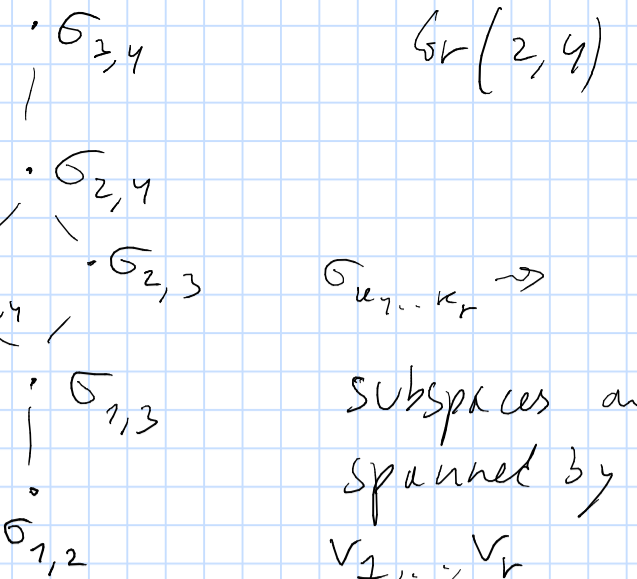 σ_{3,4} Gr(2,4)
σ_{2,4}
σ_{2,3} σ_{k_1...k_r} ⇝
4
σ_{1,3} subspaces
spanned by
σ_{1,2} v_1,...,v_r